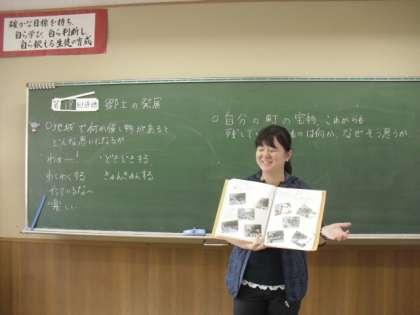 確かな目標を持ち、
自ら学び、自ら判断し、
自ら鍛える生徒の育成
郷土の発展
○地域で何か催し物があると
どんな思いになるか
わぁー！ どきどきする
わくわくする きゅんきゅんする
楽しい
○自分の町の宝物、これからも
残して
ものは何か、なぜそう思うか